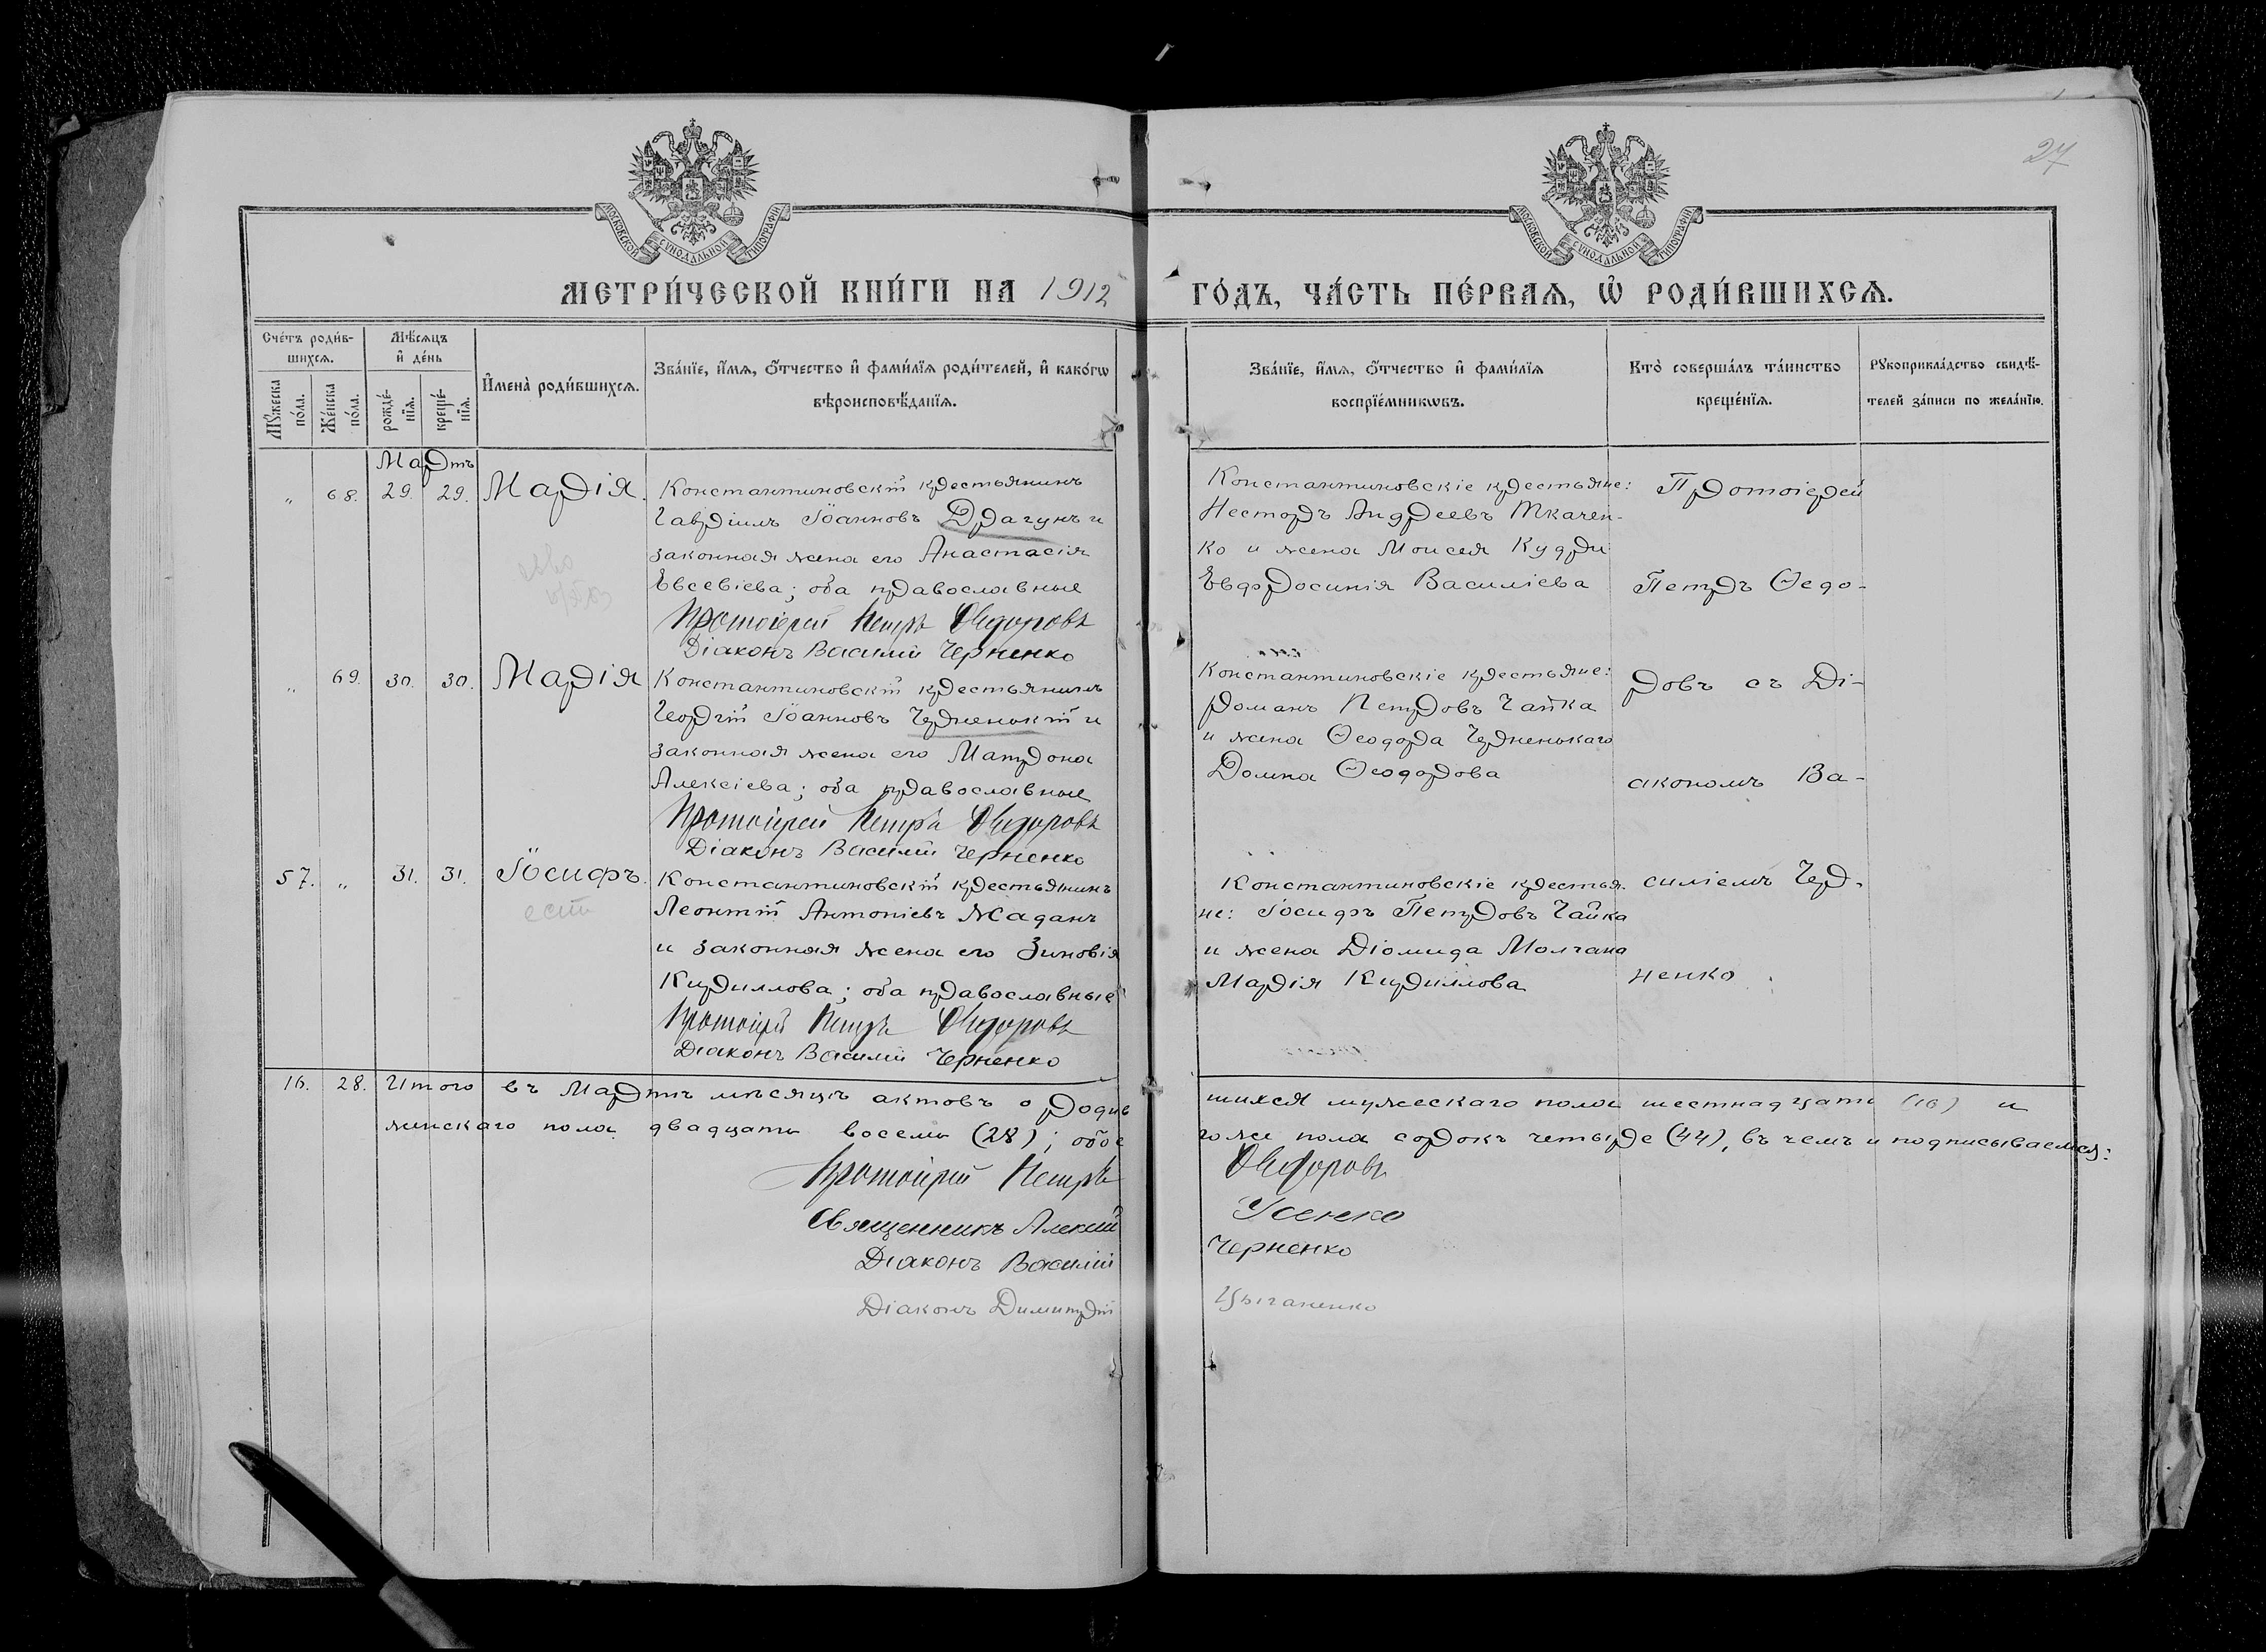 27
МОСКОВСКОЙ СѴНОДАЛЬНОЙ ТИПОГРАФІИ
МОСКОВСКОЙ СѴНОДАЛЬНОЙ ТИПОГРАФІИ
МЕТРИ́ЧЕСКОЙ КНИ́ГИ НА 1912 ГО́ДЪ, ЧА́СТЬ ПЕ́РВАѦ, Ѡ҆ РОДИ́ВШИХСѦ.
Сче́тъ роди́в-
шихсѧ.
Мꙋ́жеска по́ла.
Же́нска по́ла.
Мѣ́сѧцъ
и҆ де́нь
рожде́-
нїѧ.
креще́-
нїѧ.
И҆мена̀ роди́вшихсѧ.
Зва́нїе, и҆́мѧ, ѻ҆́тчество и҆ фами́лїѧ роди́телей, и҆ како́гѡ
вѣроисповѣ́данїѧ.
Зва́нїе, и҆́мѧ, ѻ҆́тчество и҆ фами́лїѧ
воспрїе́мникѡвъ.
Кто̀ соверша́лъ та́инство
креще́нїѧ.
Рꙋкоприкла́дство свидѣ́-
телей за́писи по жела́нїю.
Мартъ
„ 68. 29. 29. Марія.
Константиновскій крестьянинъ
Гавріилъ Іоанновъ Драгунъ и
законная жена его Анастасія
Евсевіева; оба православные
Протоіерей Петръ Ѳедоровъ
Діаконъ Василій Черненко
Константиновскіе крестьяне:
Несторъ Андреевъ Ткачен-
ко и жена Моисея Кудри
Евфросинія Василіева
Протоіерей
Петръ Ѳедо-
„ 69. 30. 30. Марія
Константиновскій крестьянинъ
Георгій Іоанновъ Черненькій и
законная жена его Матрона
Алексіева; оба православные
Протоіерей Петръ Ѳедоровъ
Діаконъ Василій Черненко
Константиновскіе крестьяне:
Романъ Петровъ Чайка
и жена Ѳеодора Черненькаго
Домна Ѳеодорова
ровъ съ Ді-
акономъ Ва-
57. „ 31. 31. Іосифъ.
Константиновскій крестьянинъ
Леонтій Антоніевъ Жаданъ
и законная жена его Зиновія
Кириллова; оба православные
Протоіерей Петръ Ѳедоровъ
Діаконъ Василій Черненко
Константиновскіе крестья-
не: Іосифъ Петровъ Чайка
и жена Діомида Молчана
Марія Кириллова
силіемъ Чер-
ненко
16. 28. Итого въ Мартѣ мѣсяцѣ актовъ о родив
шихся мужескаго пола шестнадцать (16) и
женскаго пола двадцать восемь (28); обое
го же пола сорокъ четыре (44), въ чемъ и подписываемся:
Протоіерей Петръ Ѳедоровъ
Священникъ Алексій Усенко
Діаконъ Василій Черненко
Діаконъ Димитрій Цыганенко